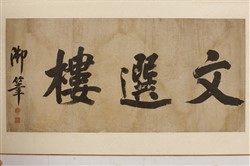 文選樓
御筆